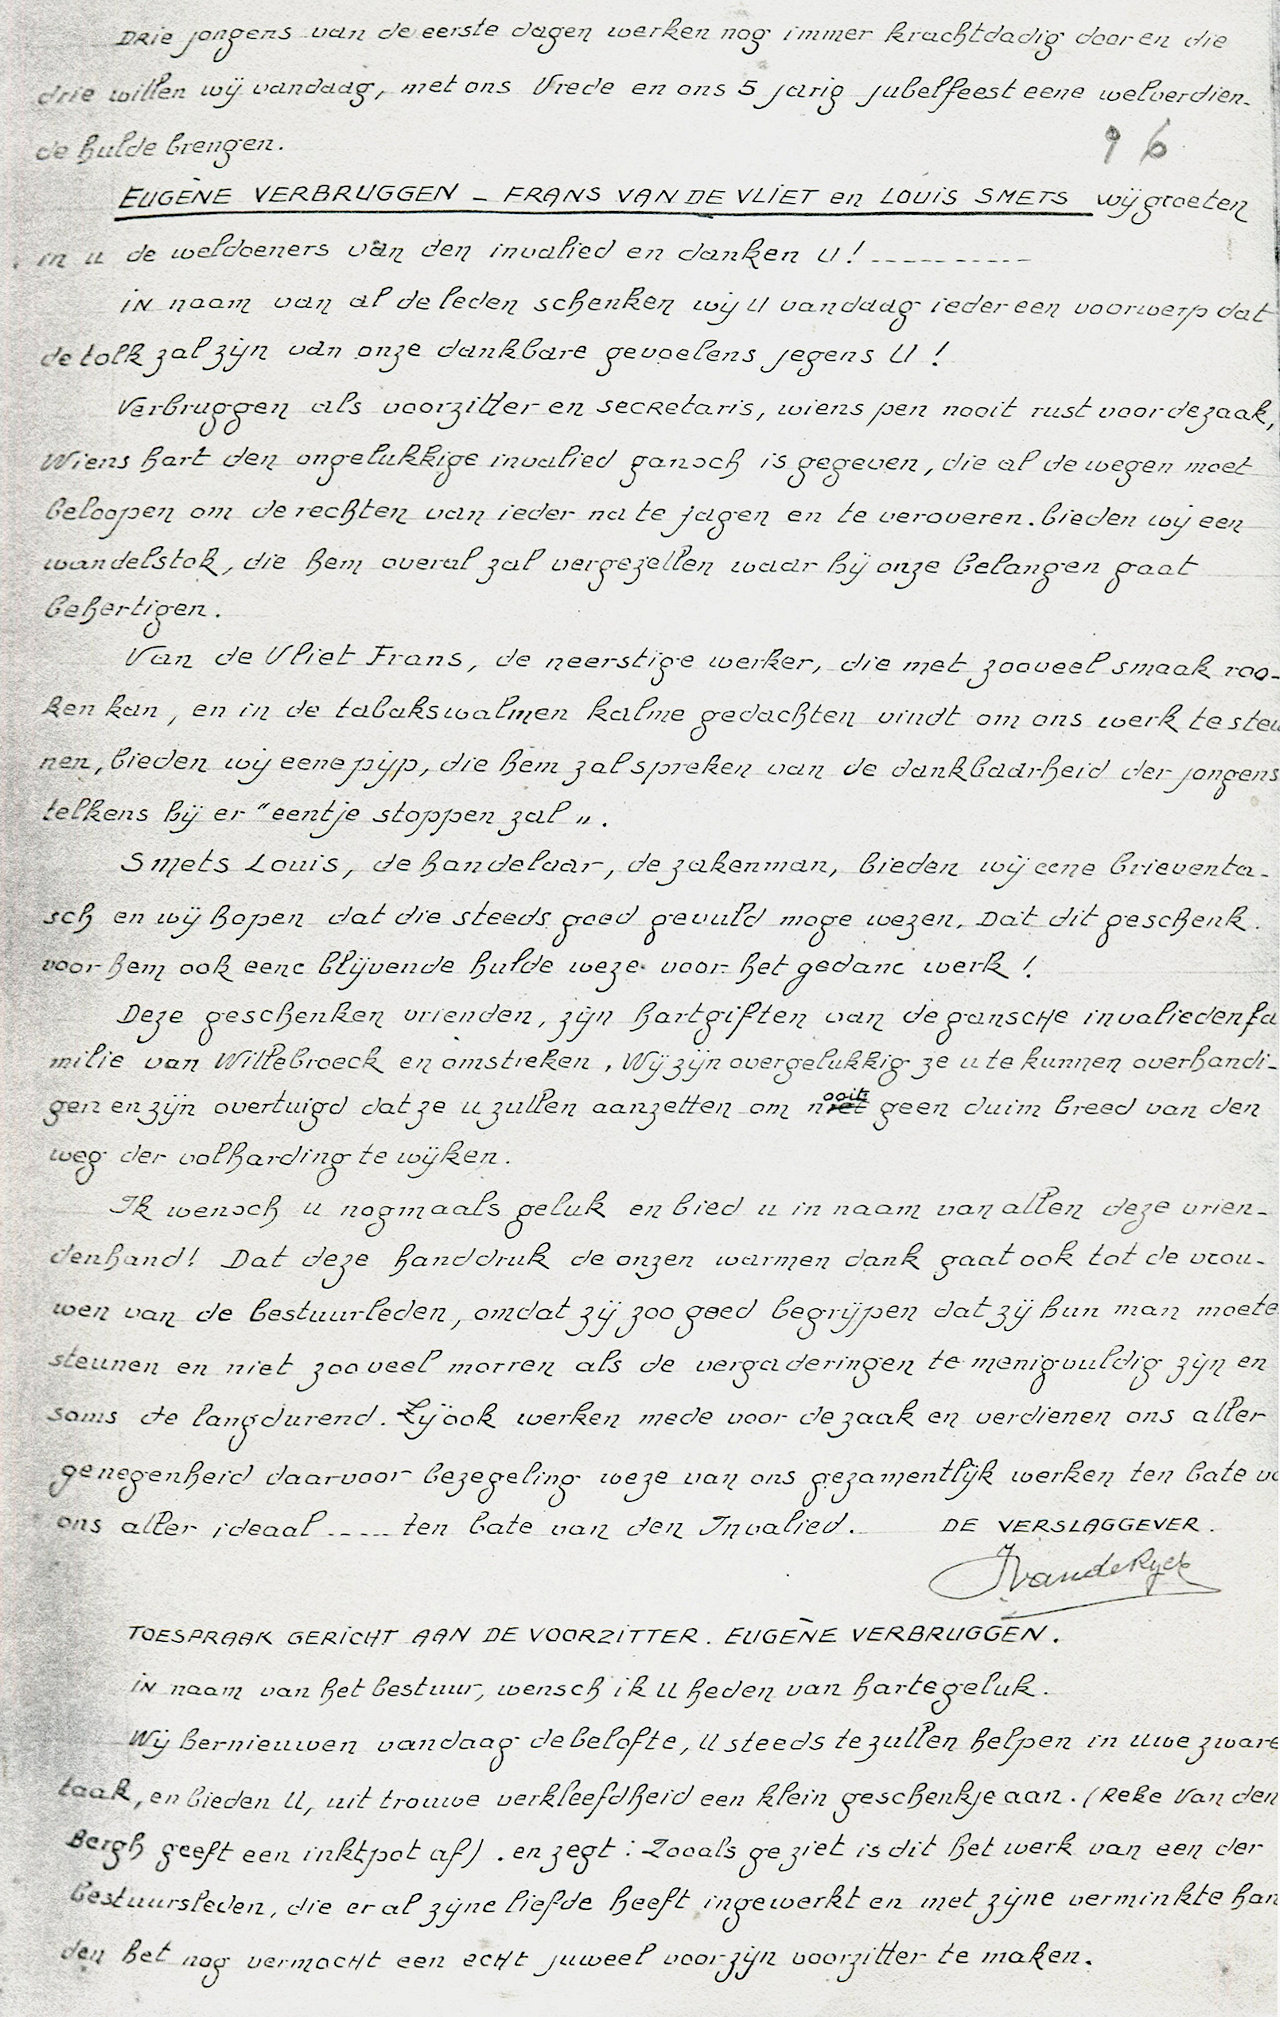 Drie jongens van de eerste dagen werken nog immer krachtdadig door en die
drie willen wij vandaag, met ons Vrede en ons 5 jarig jubelfeest eene welverdien-
de hulde brengen.
96
EUGÈNE VERBRUGGEN - FRANS VAN DE VLIET en LOUIS SMETS wij groeten
in u de weldoeners van den invalied en danken U! ----------
in naam van al de leden schenken wij U vandaag ieder een voorwerp dat
de tolk zal zijn van onze dankbare gevoelens jegens U!
Verbruggen als voorzitter en secretaris, wiens pen nooit rust voor de zaak,
Wiens hart den ongelukkige invalied gansch is gegeven, die al de wegen moet
beloopen om de rechten van ieder na te jagen en te veroveren. bieden wij een
wandelstok, die hem overal zal vergezellen waar hij onze belangen gaat
behertigen.
Van de Vliet Frans, de neerstige werker, die met zooveel smaak roo-
ken kan, en in de tabakswalmen kalme gedachten vindt om ons werk te steu
nen, bieden wij eene pijp, die hem zal spreken van de dankbaarheid der jongens
telkens hij er "eentje stoppen zal".
Smets Louis, de handelaar, de zakenman, bieden wij eene brieventa-
sch en wij hopen dat die steeds goed gevuld moge wezen. Dat dit geschenk
voor hem ook eene blijvende hulde weze voor het gedane werk!
Deze geschenken vrienden, zijn hartgiften van de gansche invaliedenfa
milie van Willebroeck en omstreken. Wij zijn overgelukkig ze u te kunnen overhandi-
gen en zijn overtuigd dat ze u zullen aanzetten om nooit geen duim breed van den
weg der volharding te wijken.
Ik wensch u nogmaals geluk en bied u in naam van allen deze vrien-
denhand! Dat deze handdruk de onzen warmen dank gaat ook tot de vrou-
wen van de bestuurleden, omdat zij zoo goed begrijpen dat zij hun man moete
steunen en niet zooveel morren als de vergaderingen te menigvuldig zijn en
soms te langdurend. Zij ook werken mede voor de zaak en verdienen ons aller
genegenheid daarvoor bezegeling weze van ons gezamentlijk werken ten bate va
ons aller ideaal ----- ten bate van den Invalied. DE VERSLAGGEVER.
JvandeRyck
TOESPRAAK GERICHT AAN DE VOORZITTER. EUGÈNE VERBRUGGEN.
in naam van het bestuur, wensch ik U heden van harte geluk.
Wij hernieuwen vandaag de belofte, U steeds te zullen helpen in Uwe zware
taak, en bieden U, uit trouwe verkleefdheid een klein geschenkje aan. (Reke Van den
Bergh geeft een inktpot af). en zegt: Zooals ge ziet is dit het werk van een der
bestuursleden, die er al zijne liefde heeft ingewerkt en met zijne verminkte han
den het nog vermocht een echt juweel voor zijn voorzitter te maken.